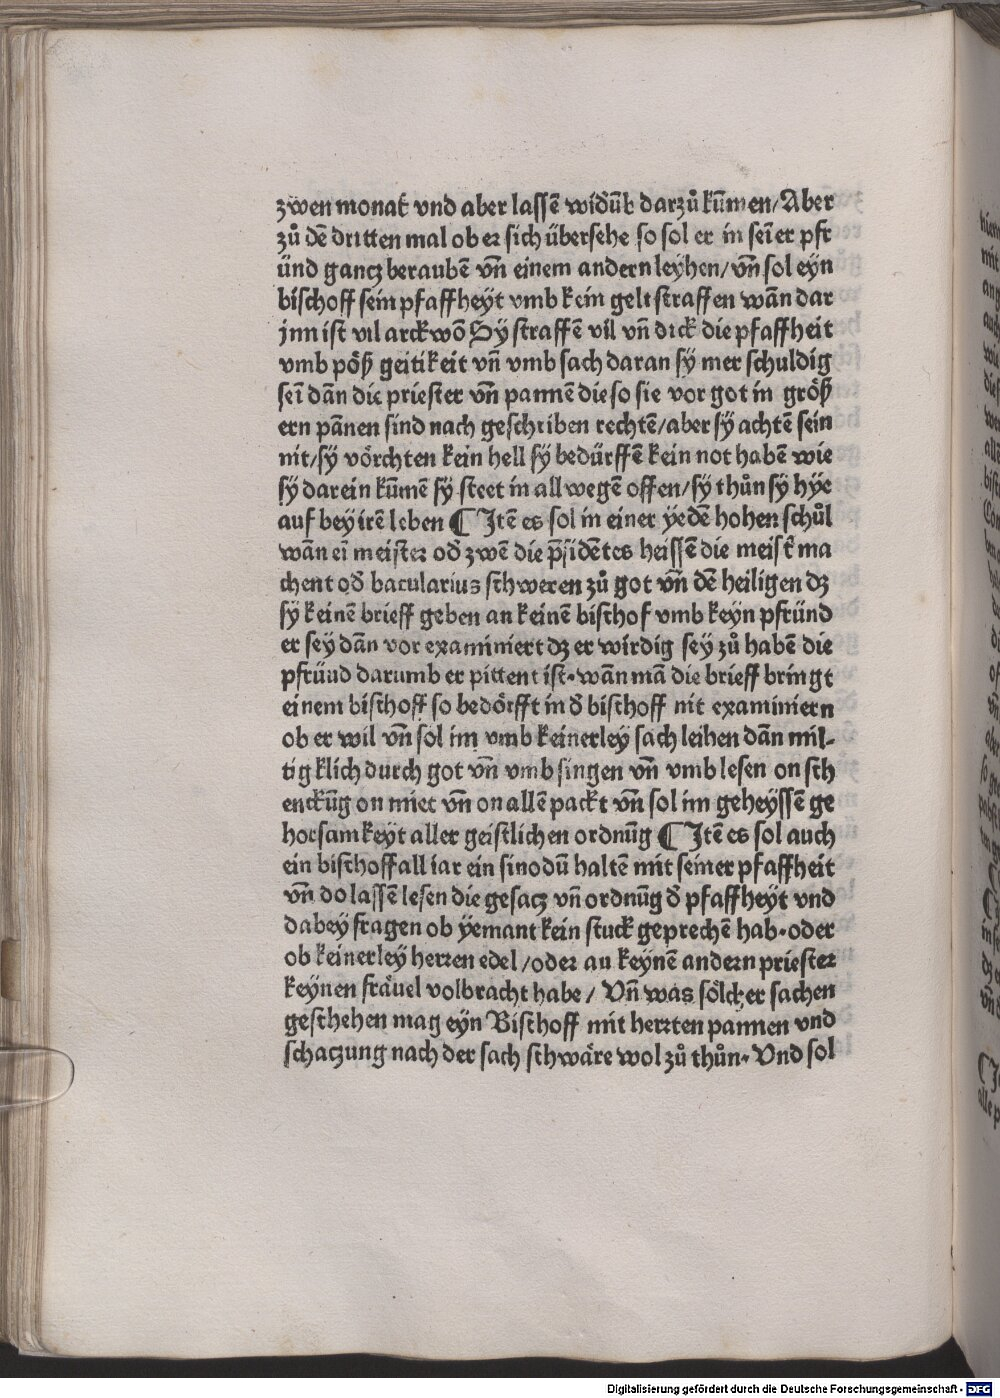 zwen monat und aber lassē widūb darzů kūmen/ Aber
zů dē dritten mal ob er sich übersehe so sol er in seīer pfr
ünd gancz beraubē vn̄ einem andern leyhen/ vn̄ sol eyn
bischoff sein pfaffheÿt vmb kein gelt straffen wān dar
jnn ist vil arckwō Sÿ straffē vil vn̄ dick die pfaffheit
vmb pöß geitikeit vn̄ vmb sach daran sÿ mer schuldig
seī dān die priester vn̄ pannē die so sie vor got in größ
ern pānen sind nach geschriben rechtē/ aber sÿ achtē sein
nit/ sÿ vörchten kein hell sÿ bedürffē kein not habē wie
sÿ darein kūmē sÿ steet in all wegē offen/ sÿ thůn sÿ hÿe
auf bey irē leben ¶ Jtē es sol in einer ÿedē hohen schůl
wān eī meister od̄ zwē die p̄sidētes heissē die meist̄ ma
chent od̄ bacularius schweren zů got vn̄ dē heiligen dz
sÿ keinē brieff geben an keinē bischof vmb keyn pfründ
er sey dān vor examiniert dz er wirdig seÿ zů habē die
pfrüud darumb er pittent ist· wān mā die brieff bringt
einem bischoff so bedörfft in d̄ bischoff nit examiniern
ob er wil vn̄ sol im vmb keinerley sach leihen dān mil-
tigklich durch got vn̄ vmb singen vn̄ vmb lesen on sch
enckūg on miet vn̄ on allē packt vn̄ sol im geheÿssē ge
horsamkeyt aller geistlichen ordnūg ¶ Jtē es sol auch
ein bischoff all iar ein sinodū haltē mit seiner pfaffheit
vn̄ do lassē lesen die gesacz vn̄ ordnūg d̄ pfaffheÿt vnd
dabey fragen ob ÿemant kein stuck geprechē hab· oder
ob keinerley herren edel/ oder au keynē andern priester
keÿnen fräuel volbracht habe/ Vn̄ was sölcher sachen
geschehen mag eÿn Bischoff mit herrten pannen vnd
schaczung nach der sach schwäre wol zů thůn· Vnd sol
Digitalisierung gefördert durch die Deutsche Forschungsgemeinschaft - DFG